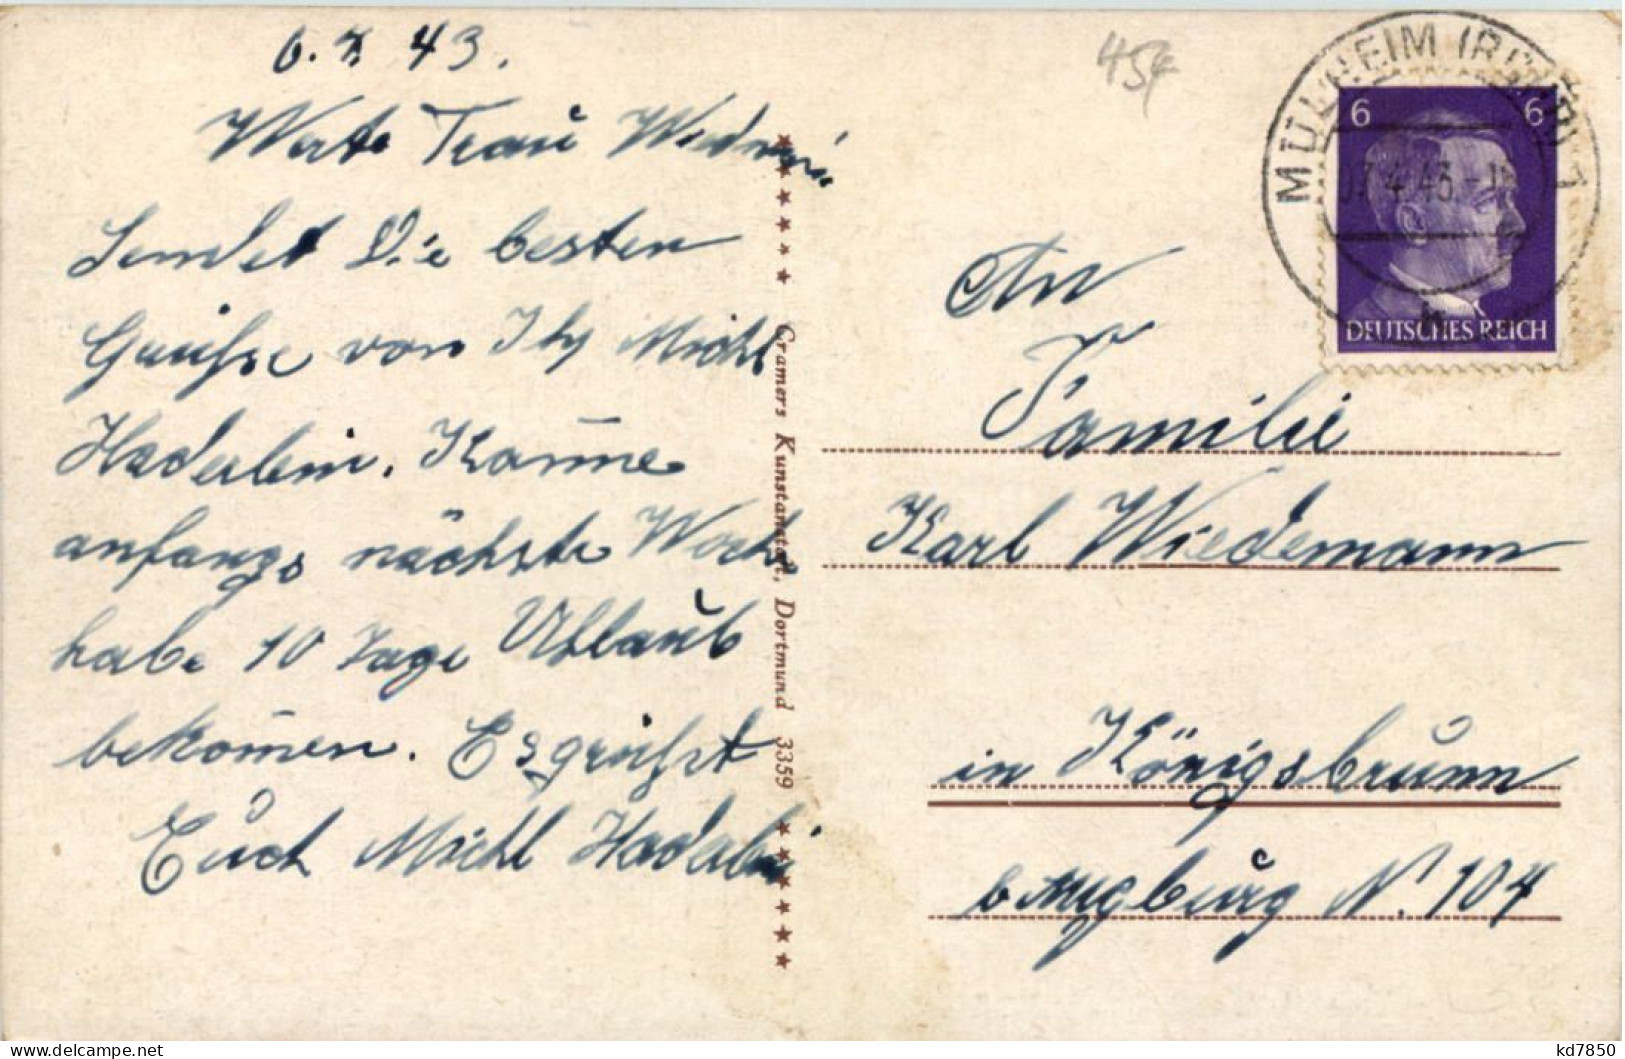 6. 4. 43.
Werte Frau Wiedem.
Sendet Die besten
Grüsse von Ihr Michl
Haderlein. Kom̄e
anfangs nächste Woche
habe 10 Tage Urlaub
bekom̄en. Es grüsst
Euch Michl Haderlein
Cramers Kunstanstalt, Dortmund 3359
45
MÜLHEIM (RUHR) 1
07.4.43.-1
6 6
DEUTSCHES REICH
An
Familie
Karl Wiedemann
in Königsbrunn
b Augsburg N. 104
kd7850